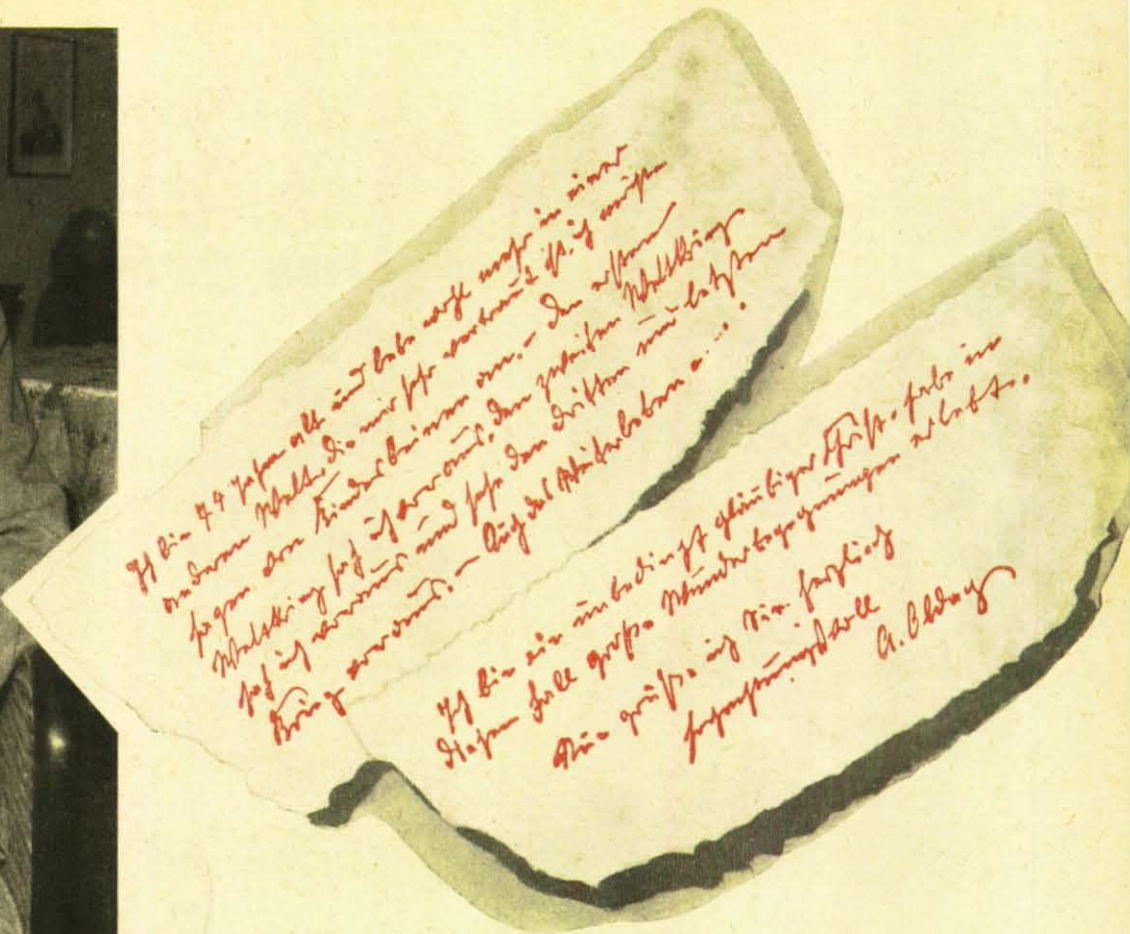 Ich bin 74 Jahre alt und lebe wohl mehr in einer
anderen Welt, die mir sehr vertraut ist. ich möchte
sagen von Kindesbeinen an. – Den ersten
Weltkrieg sah ich voraus, den zweiten Weltkrieg
sah ich voraus und sehe den dritten und letzten
Krieg voraus. – Auch das Weiterleben....!
Ich bin ein unbedingt gläubiger Christ. habe in
diesem Fall große Wunderbegegnungen erlebt.
Nun grüße ich Sie herzlich
hochachtungsvoll